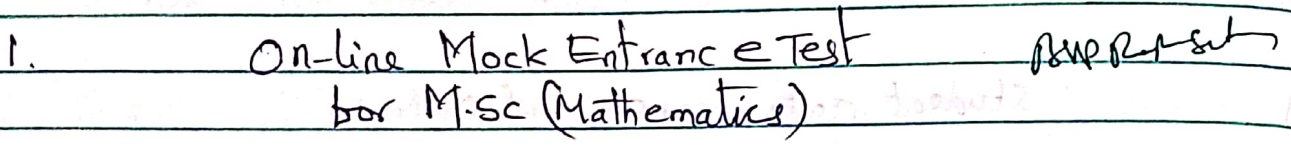 1. On-line Mock Entrance Test
for M.Sc (Mathematics)